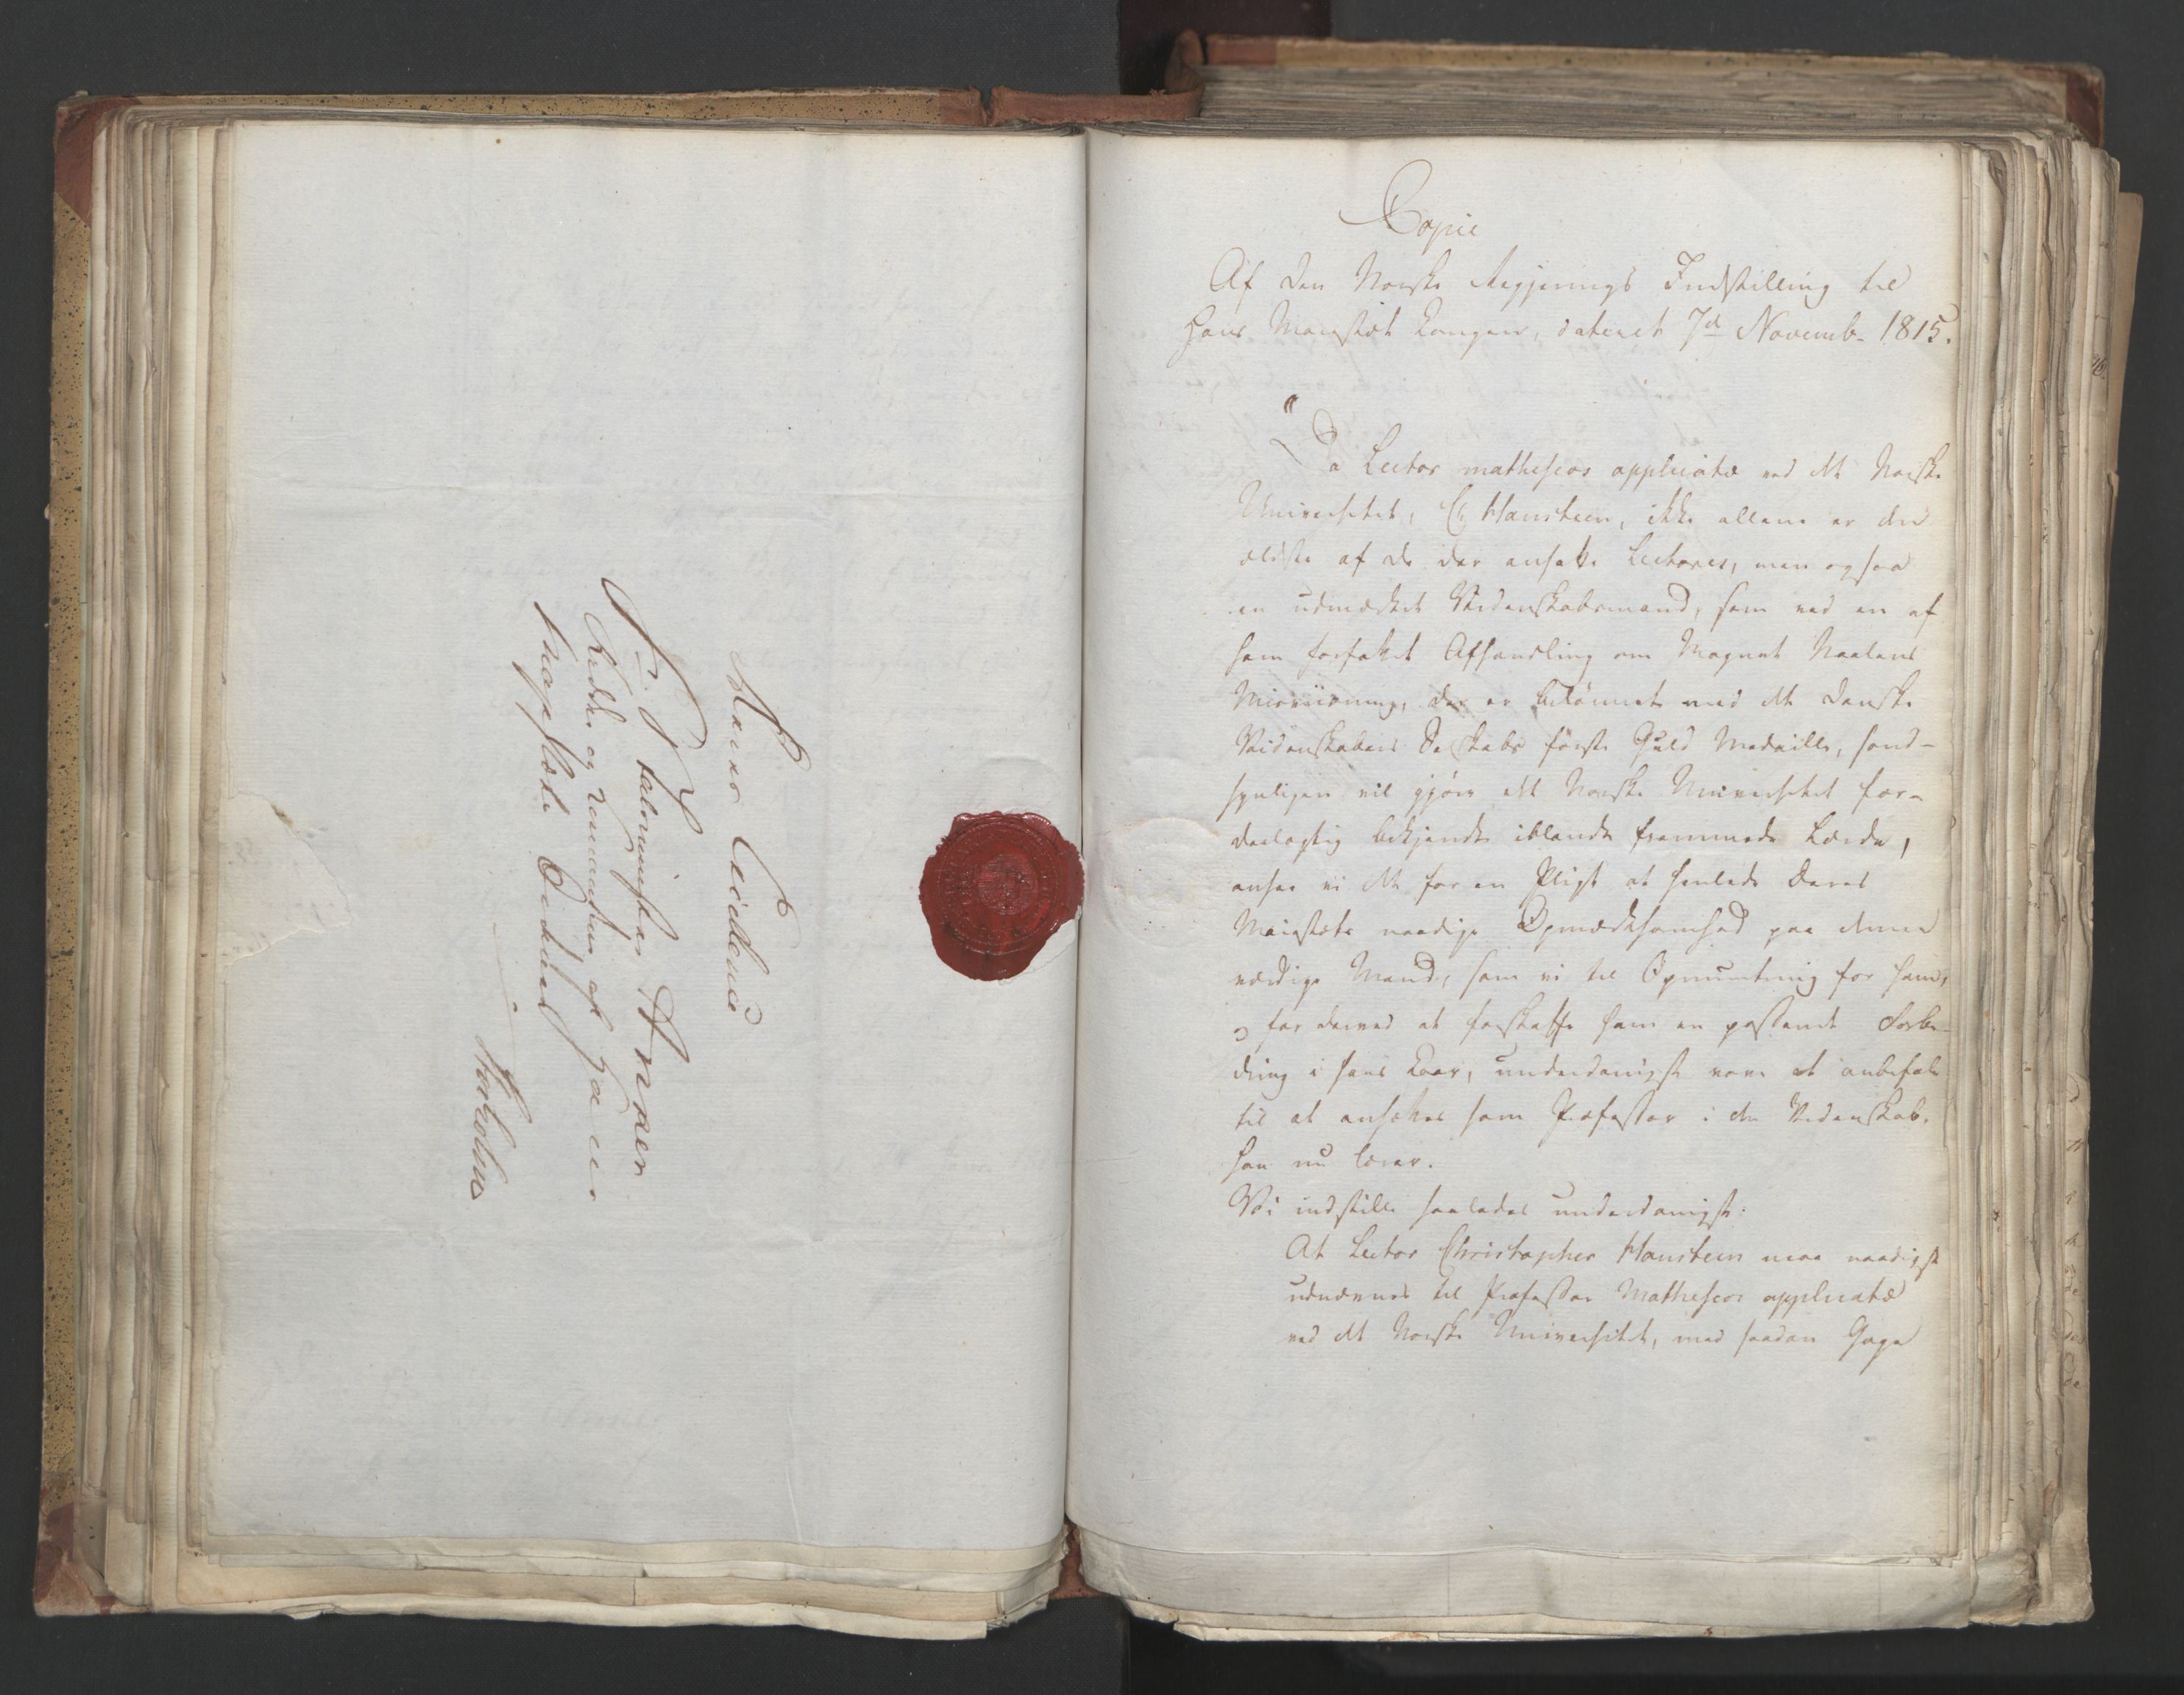 Hans Excellence
Herr Statsminister Anker
Ridder og Commandeur af Hans
Majestæts Ordener
Stockholm
Copie
Af den Norske Regjerings Indstilling til
Hans Majestæt Kongen, dateret 7d Novemb. 1815.
"Da Lector matheseos applicatæ ved det Norske
Universitet, Ch Hansteen, ikke allene er den
ældste af de der ansatte Lectores, men ogsaa
en udmærket Videnskabsmand, som ved en af
ham forfattet Afhandling om Magnet Naalens
Misviisning, der er belönnet med det danske
Videnskabers Selskabs förste Guld Medaille, sand-
synligen vil gjöre det Norske Universitet for-
deelagtig bekjendt iblandt fremmede Lærde,
ansee vi det for en Pligt at henlede Deres
Majestæts naadige Opmærksomhed paa denne
værdige Mand, som vi til Opmuntring for ham,
og for derved at forskaffe ham en passende Forbe-
dring i hans Kaar, underdanigst vove at anbefale
til at ansættes som Professor i den Videnskab,
han nu lærer.
Vi indstille saaledes underdanigst:
At Lector Christopher Hansteen maa naadigst
udnævnes til Professor Matheseos applicatæ
ved det Norske Universitet, med saadan Gage